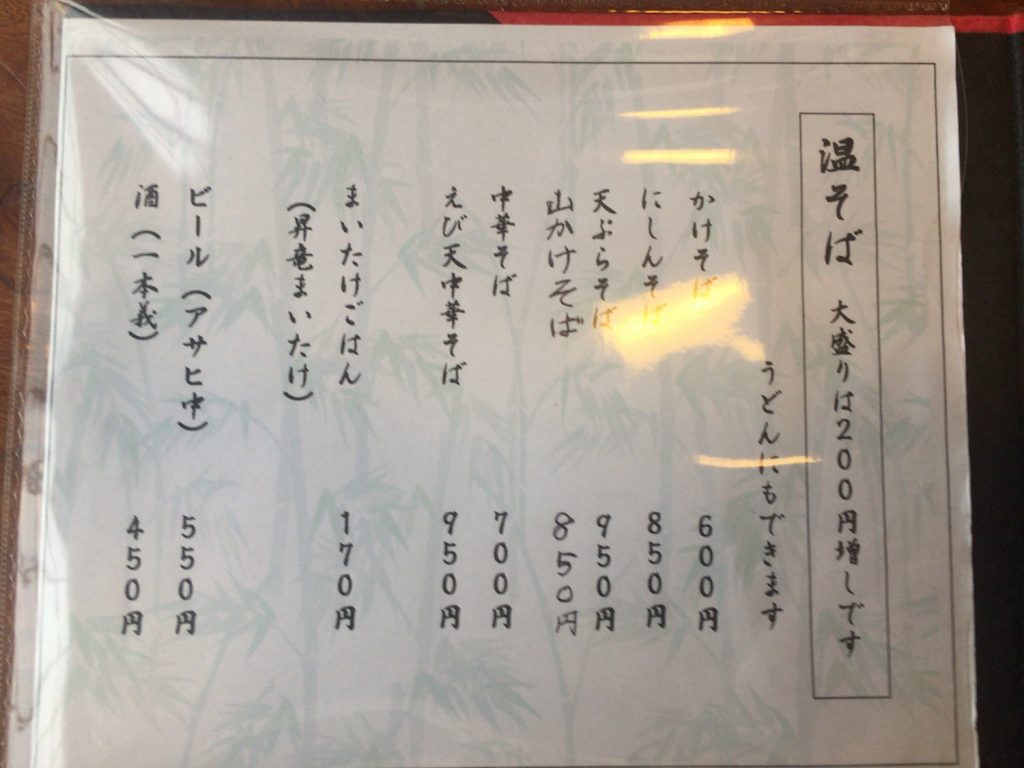 温そば 大盛りは200円増しです
うどんにもできます
かけそば 600円
にしんそば 850円
天ぷらそば 950円
山かけそば 850円
中華そば 700円
えび天中華そば 950円
まいたけごはん 170円
(昇竜まいたけ)
ビール(アサヒ中) 550円
酒(一本義) 450円